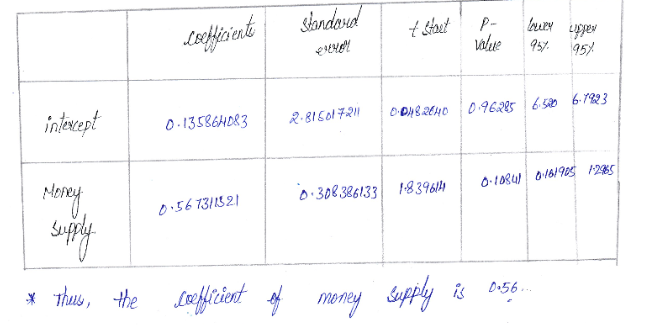 coefficients Standard error t Start P-value lower 95% upper 95%
intercept 0.135864083 2.815017211 0.0482640 0.96285 6.520 6.7923
Money supply 0.567311321 0.308386133 1.839614 0.10841 0.161905 1.2965
* Thus, the coefficient of money supply is 0.56...